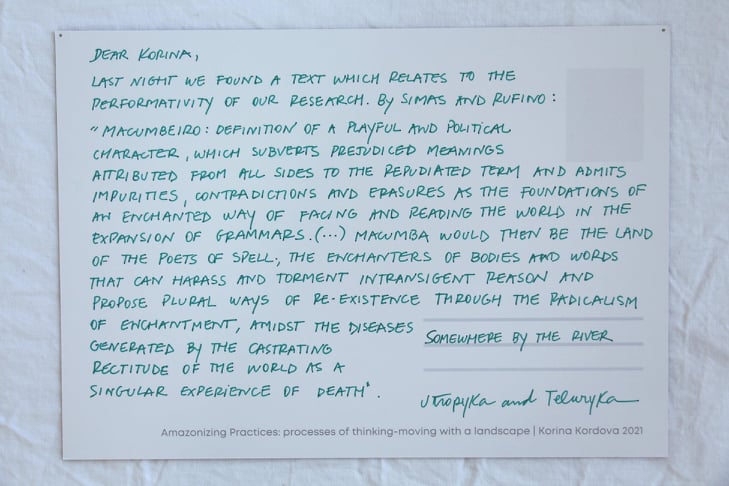 DEAR KORINA,
LAST NIGHT WE FOUND A TEXT WHICH RELATES TO THE
PERFORMATIVITY OF OUR RESEARCH. By SIMAS AND RUFINO:
"MACUMBEIRO: DEFINITION OF A PLAYFUL AND POLITICAL
CHARACTER, WHICH SUBVERTS PREJUDICED MEANINGS
ATTRIBUTED FROM ALL SIDES TO THE REPUDIATED TERM AND ADMITS
IMPURITIES, CONTRADICTIONS AND ERASURES AS THE FOUNDATIONS OF
AN ENCHANTED WAY OF FACING AND READING THE WORLD IN THE
EXPANSION OF GRAMMARS. (...) MACUMBA WOULD THEN BE THE LAND
OF THE POETS OF SPELL., THE ENCHANTERS OF BODIES AND WORDS
THAT CAN HARASS AND TORMENT INTRANSIGENT REASON AND
PROPOSE PLURAL WAYS OF RE-EXISTENCE THROUGH THE RADICALISM
OF ENCHANTMENT, AMIDST THE DISEASES
GENERATED BY THE CASTRATING
RECTITUDE OF THE WORLD AS A
SINGULAR EXPERIENCE OF DEATH".
SOMEWHERE BY THE RIVER
Utropyka and Teluryka
Amazonizing Practices: processes of thinking-moving with a landscape | Korina Kordova 2021